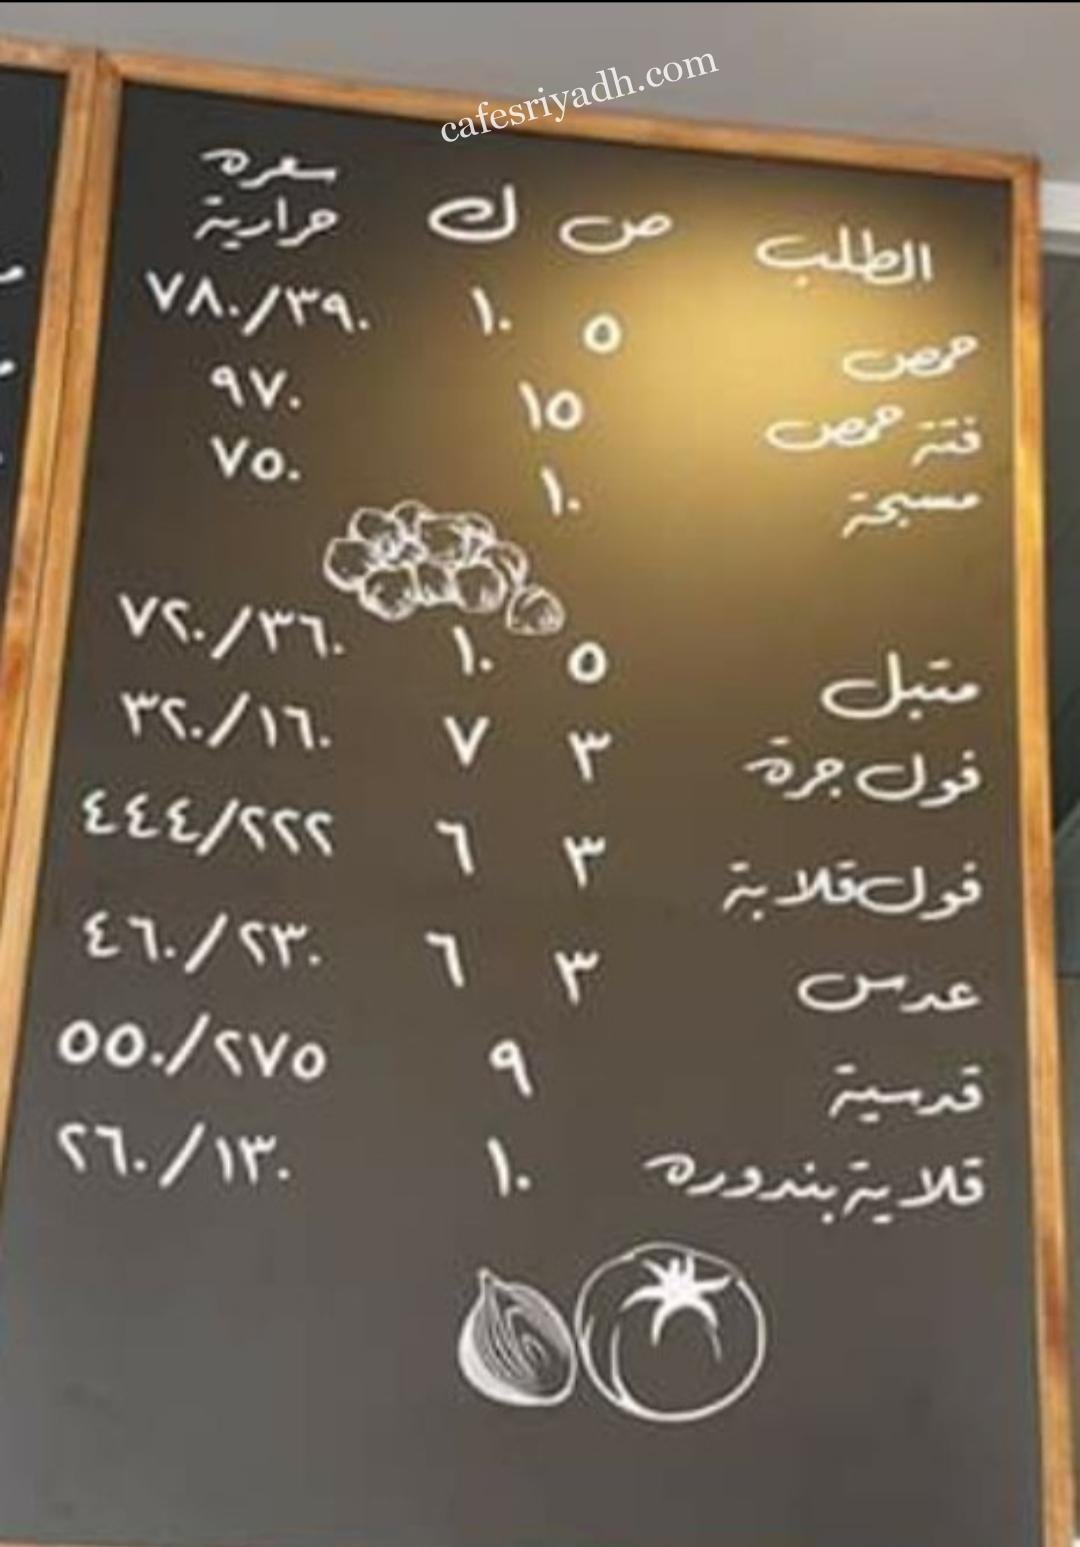 cafesriyadh.com
الطلب ص ك سعره حرارية
حمص ٥ ١٠ ٧٨٠/٣٩٠
فتة حمص ١٥ ٩٧٠
مسبحة ١٠ ٧٥٠
متبل ٥ ١٠ ٧٢٠/٣٦٠
فول جرة ٣ ٧ ٣٢٠/١٦٠
فول قلابة ٣ ٦ ٤٤٤/٢٢٢
عدس ٣ ٦ ٤٦٠/٢٣٠
قدسية ٩ ٥٥٠/٢٧٥
قلاية بندوره ١٠ ٢٦٠/١٣٠